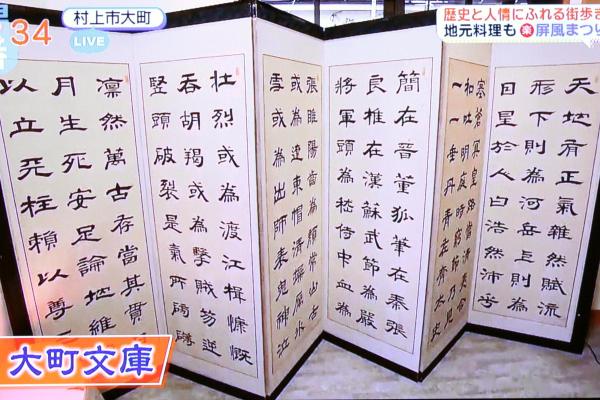 34
村上市大町
LIVE
歴史と人情にふれる街歩き
地元料理も 楽 屏風まつり
天地有正氣雜然賦流
形下則為河岳上則為
日星於人曰浩然沛乎
塞蒼冥皇路當清夷含
和吐明庭時窮節乃見
一一垂丹青在齊太史
簡在晉董狐筆在秦張
良椎在漢蘇武節為嚴
將軍頭為嵇侍中血為
張睢陽齒為顏常山舌
或為遼東帽清操厲冰
雪或為出師表鬼神泣
壯烈或為渡江楫慷慨
吞胡羯或為擊賊笏逆
豎頭破裂是氣所磅礴
凜然萬古存當其貫
月生死安足論地維
以立天柱賴以尊
大町文庫